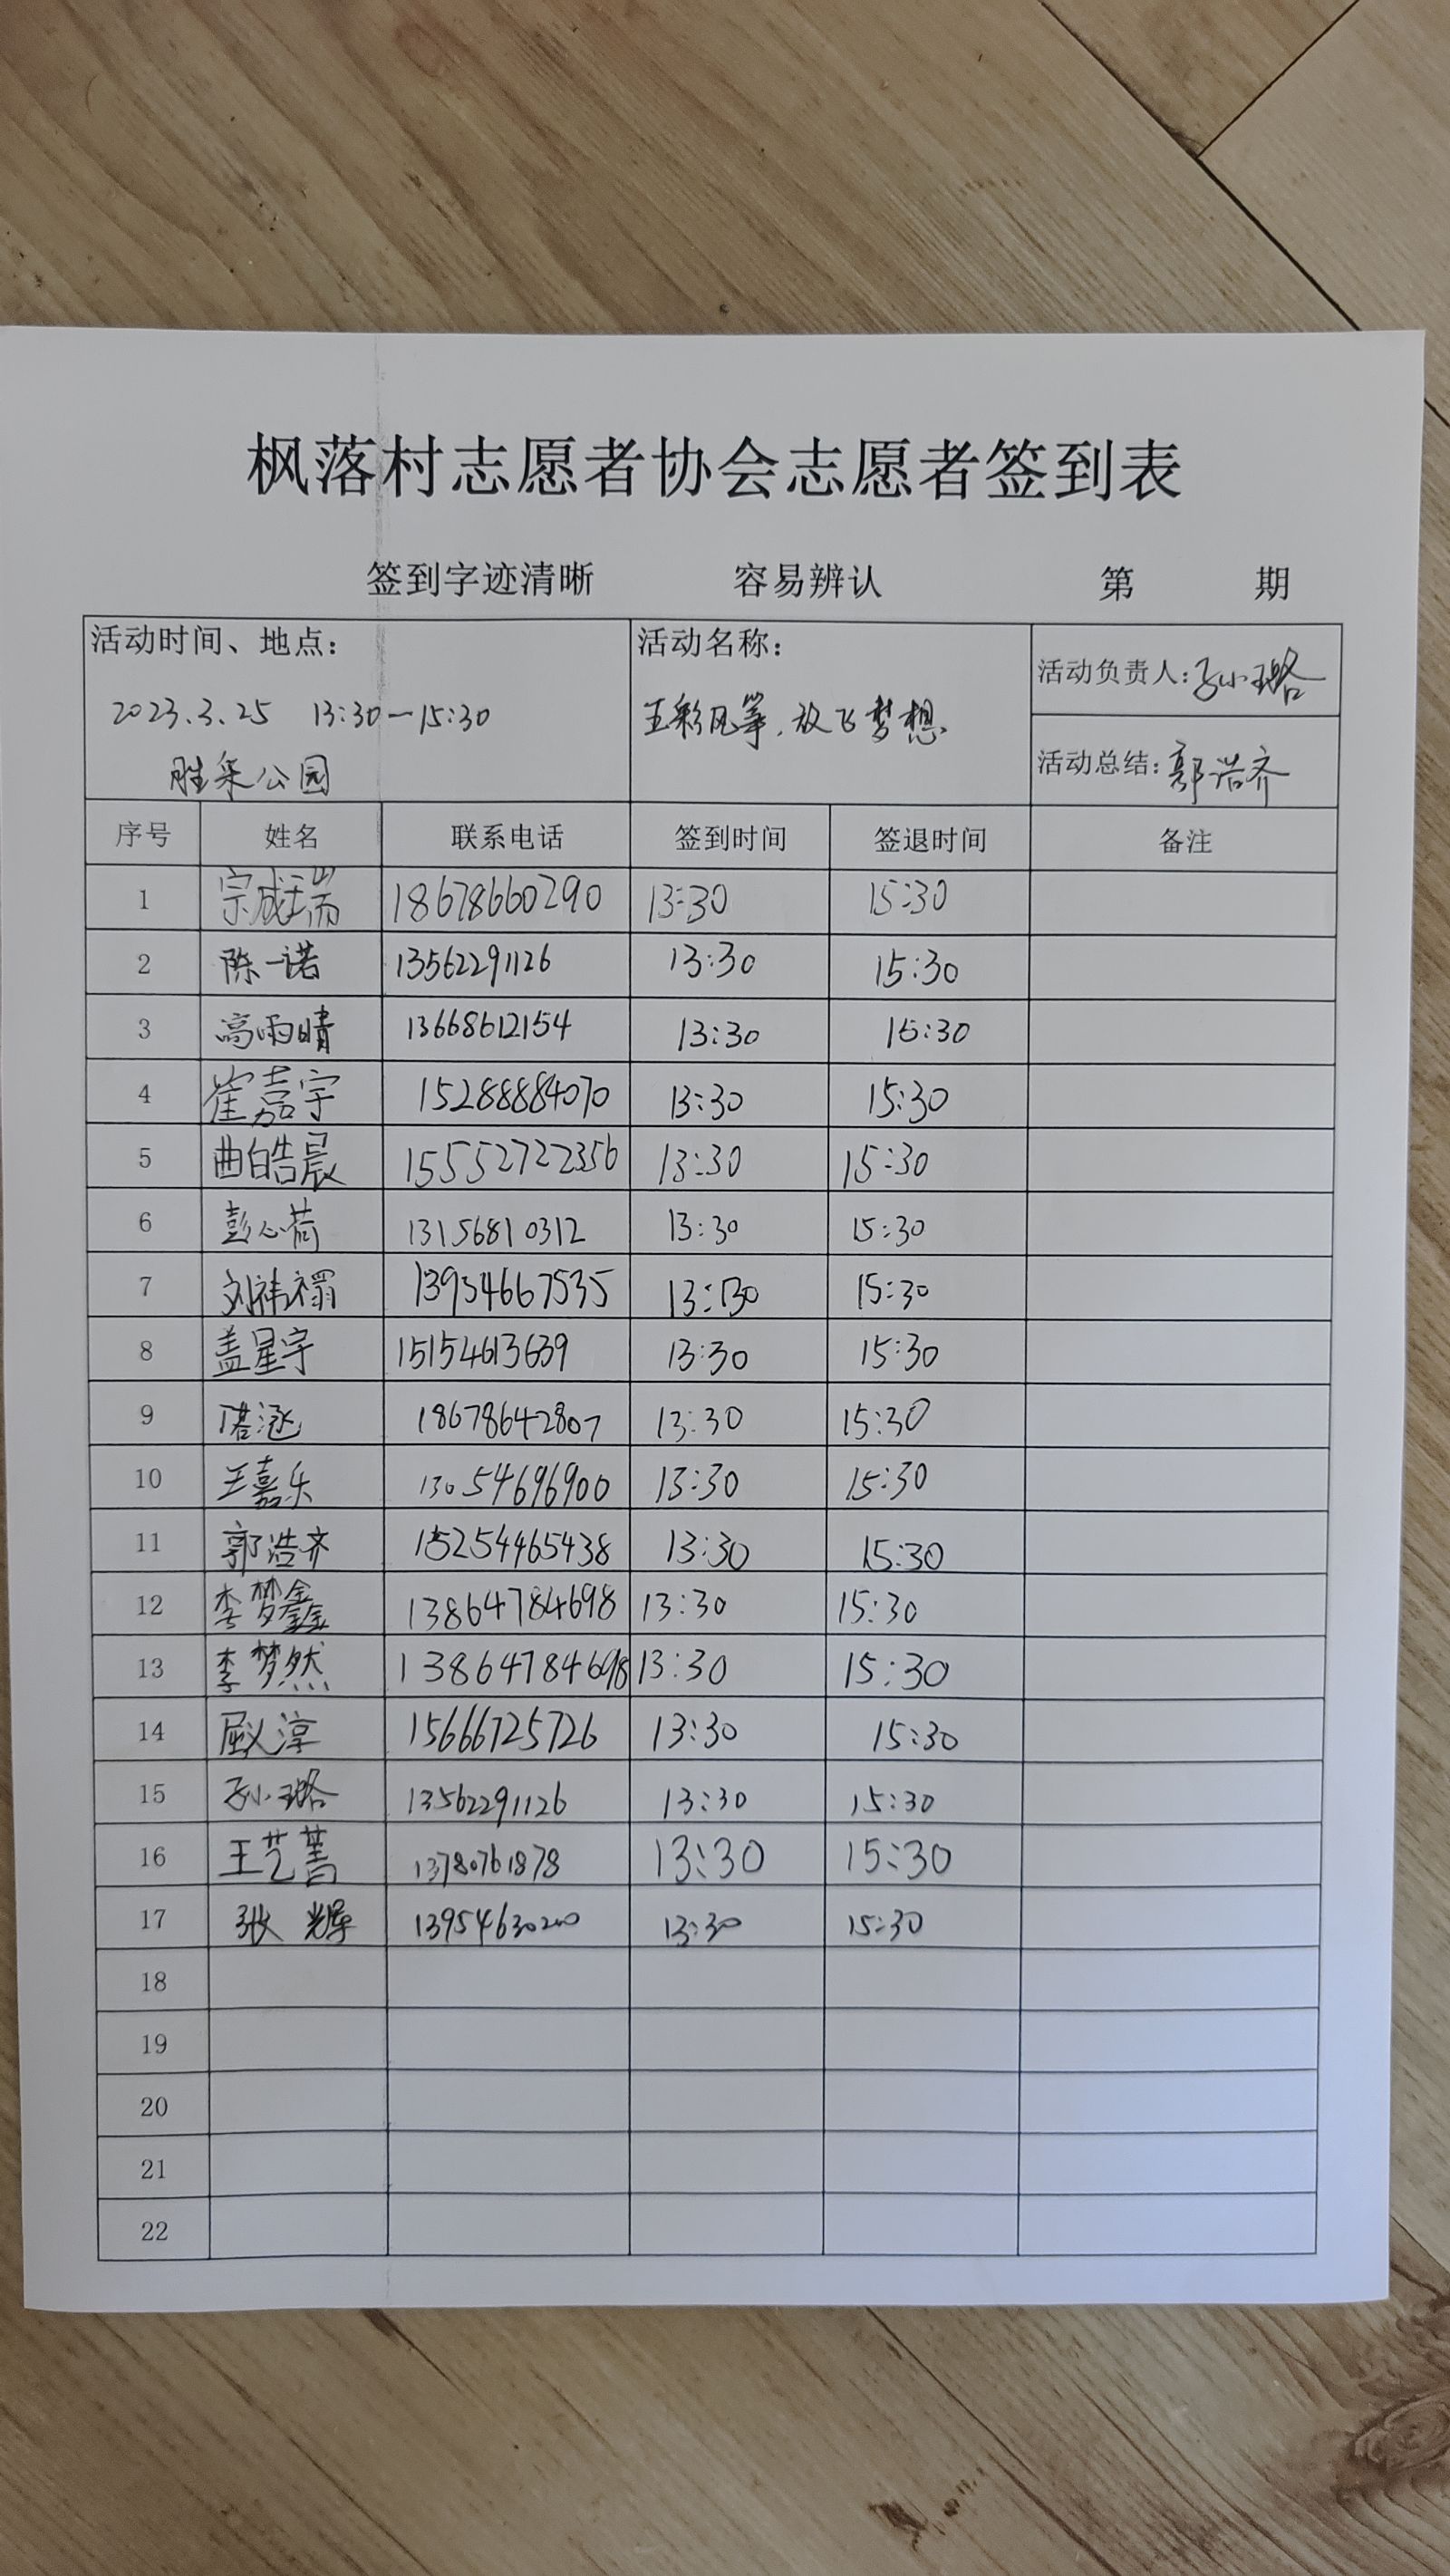 枫落村志愿者协会志愿者签到表
签到字迹清晰 容易辨认 第 期
活动时间、地点: 活动名称: 活动负责人:孙小璐
2023.3.25 13:30—15:30 五彩风筝,放飞梦想
胜采公园 活动总结:郭浩齐
序号 姓名 联系电话 签到时间 签退时间 备注
1 宗成瑞 18678660290 13:30 15:30
2 陈一诺 13562291126 13:30 15:30
3 高雨晴 13668612154 13:30 15:30
4 崔嘉宇 15288884070 13:30 15:30
5 曲皓晨 15552722356 13:30 15:30
6 彭心荷 13156810312 13:30 15:30
7 刘祎 13954667535 13:30 15:30
8 盖星宇 15154613639 13:30 15:30
9 18678642807 13:30 15:30
10 王嘉乐 13054696900 13:30 15:30
11 郭浩齐 15254465438 13:30 15:30
12 李梦鑫 13864784698 13:30 15:30
13 李梦然 13864784698 13:30 15:30
14 15666725726 13:30 15:30
15 孙小璐 13562291126 13:30 15:30
16 王艺菁 13780761878 13:30 15:30
17 张辉 13954630200 13:30 15:30
18
19
20
21
22